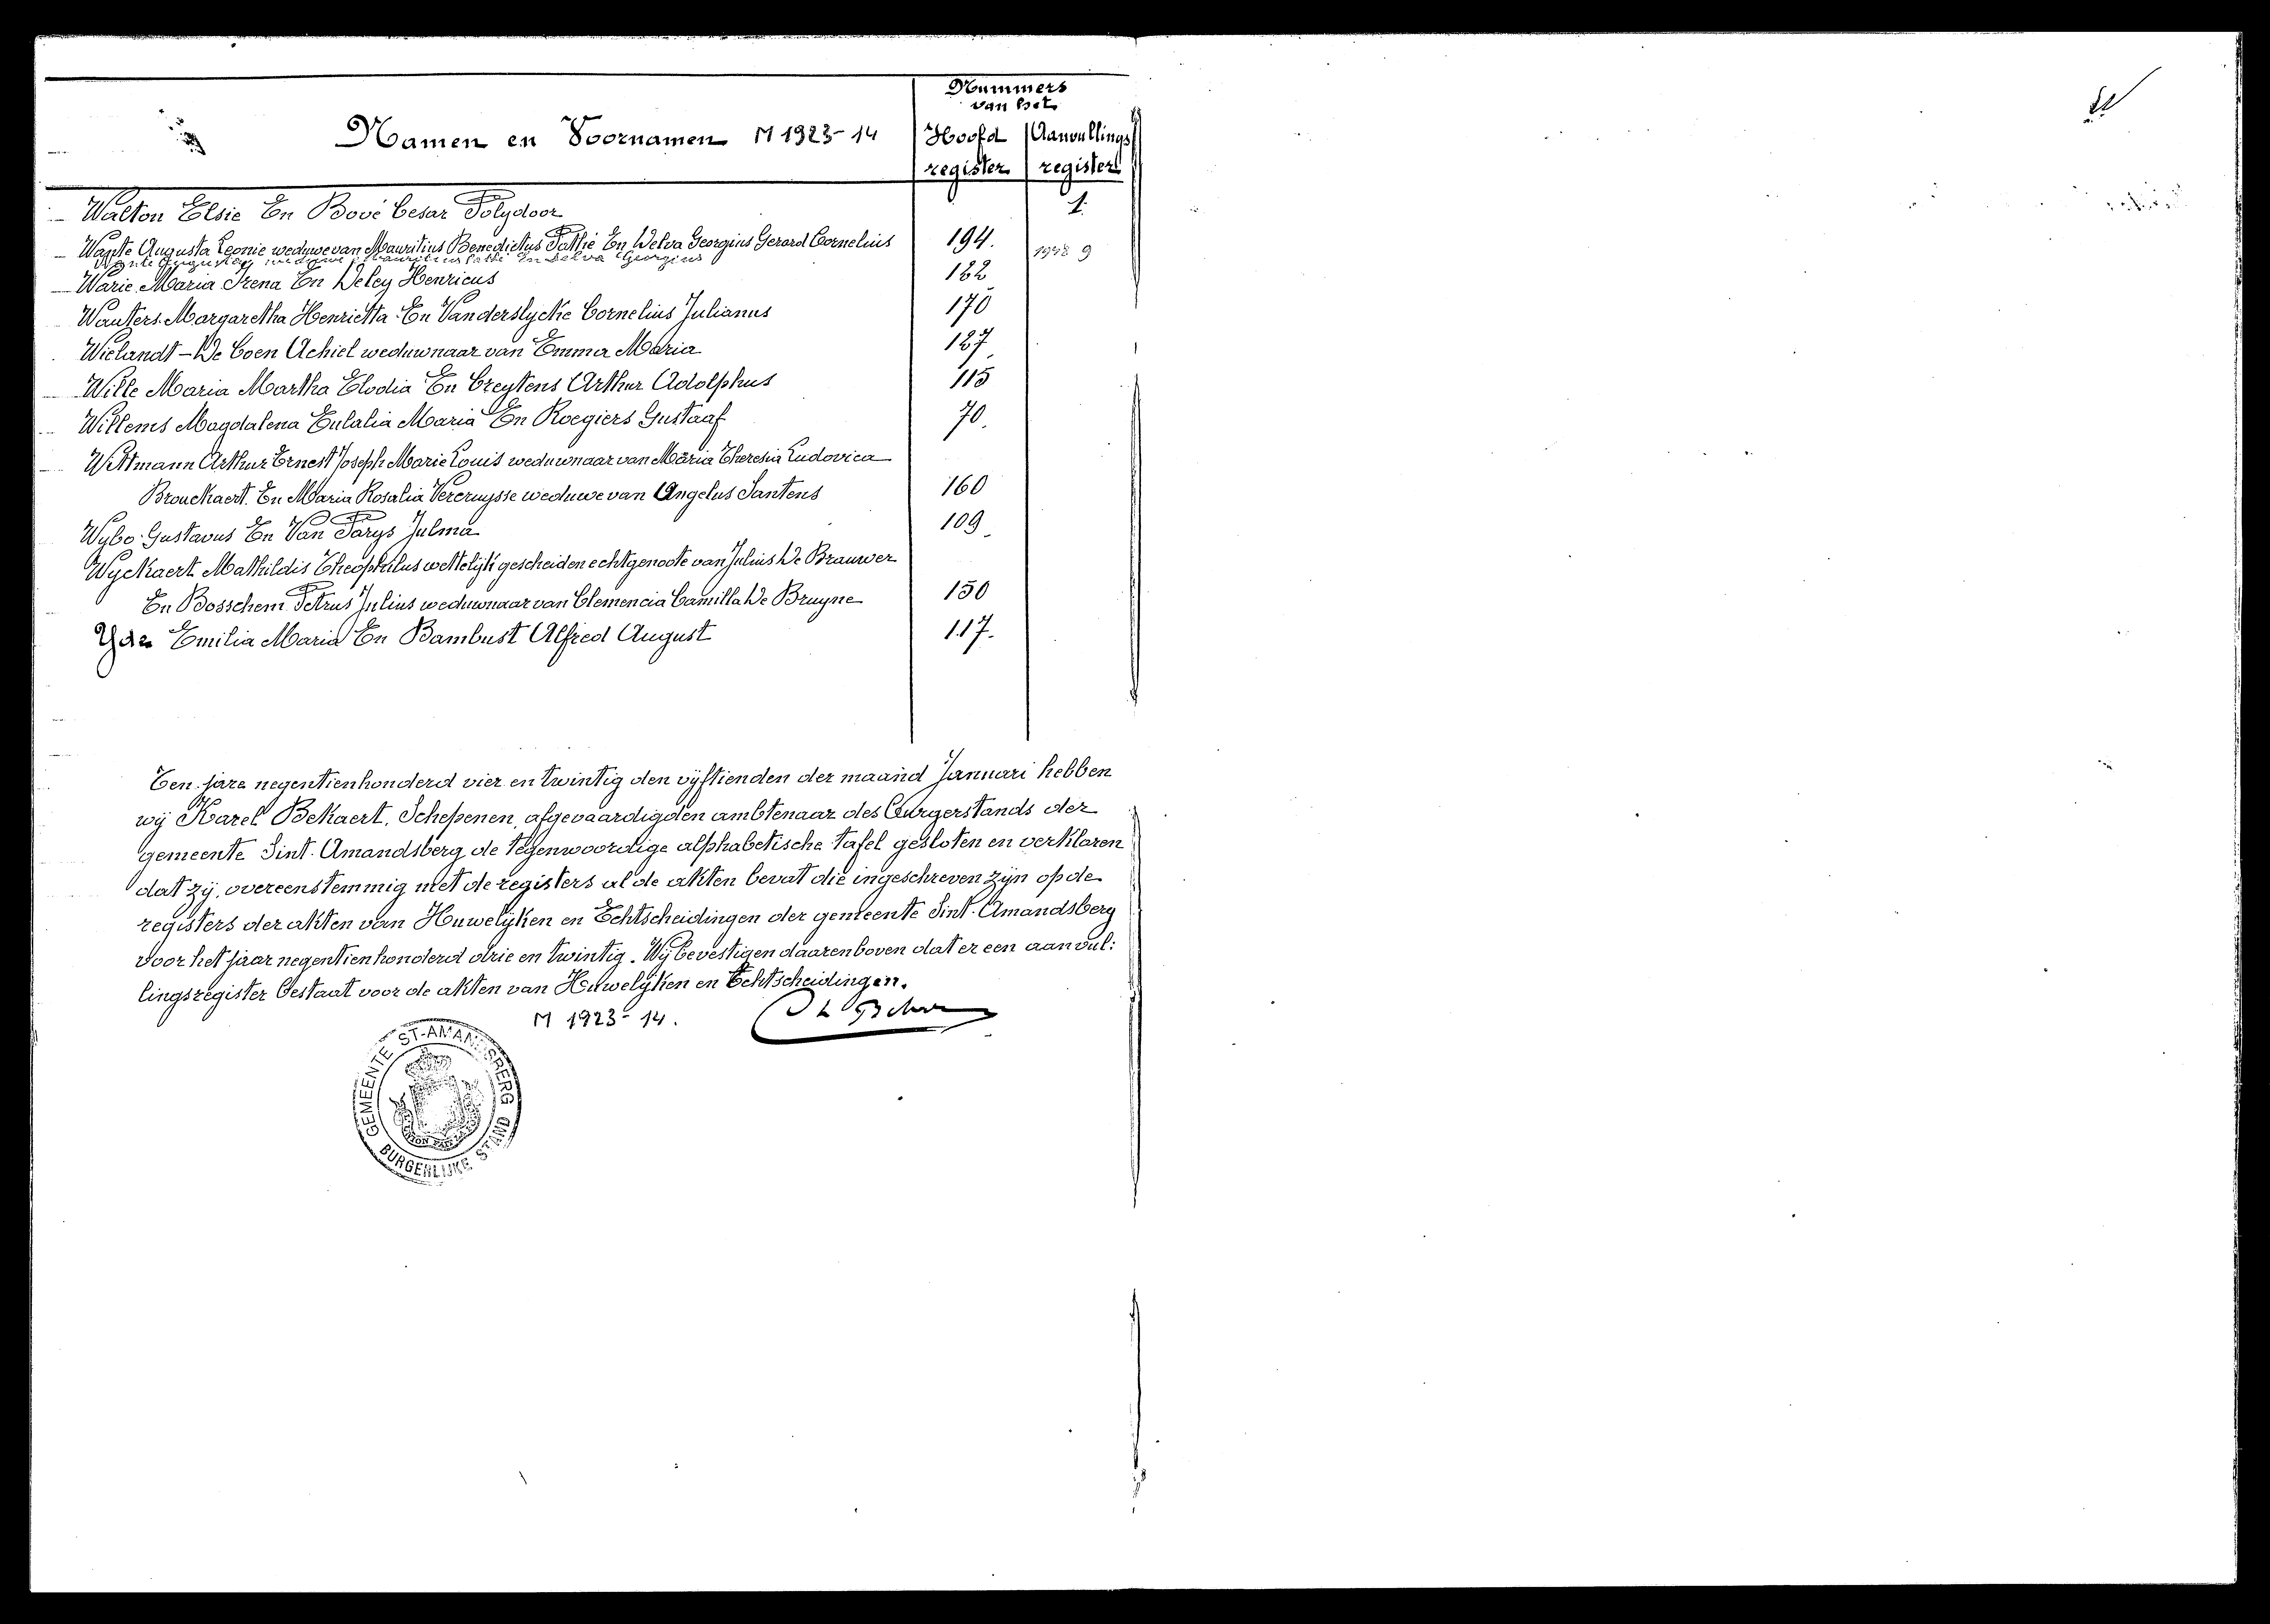 Nummers
van het
Namen en Voornamen M 1923-14 Hoofd Aanvullings
register register
Walton Elsie En Bové Cesar Polydoor 1.
Wante Augusta Leonie weduwe van Mauritius Benedictus Pattie En Delva Georgius Gerard Cornelius 194. 1948 9
Wante Augusta weduwe Mauritius Pattie En Delva Georgius
Warie Maria Irena En Deley Henricus 182
Wauters Margaretha Henrietta En Vanderslycke Cornelius Julianus 170
Wielandt - De Coen Achiel weduwnaar van Emma Maria 187
Wille Maria Martha Elodia En Creytens Arthur Adolphus 115
Willems Magdalena Eulalia Maria En Roegiers Gustaaf 70.
Wittmann Arthur Ernest Joseph Marie Louis weduwnaar van Maria Theresia Ludovica
Brouckaert. En Maria Rosalia Vercruysse weduwe van Angelus Santens 160
Wybo Gustavus En Van Parys Julma 109
Wyckaert Mathildis Theophilus wettelijk gescheiden echtgenoote van Julius De Brauwer
En Bosschem Petrus Julius weduwnaar van Clemencia Camilla De Bruyne 150
Yde Emilia Maria En Bambust Alfred August 117.
Ten jare negentienhonderd vier en twintig den vijftienden der maand Januari hebben
wij Karel Bekaert, Schepenen, afgevaardigden ambtenaar des Burgerstands der
gemeente Sint-Amandsberg de tegenwoordige alphabetische tafel gesloten en verklaren
dat zij, overeenstemmig met de registers al de akten bevat die ingeschreven zijn op de
registers der akten van Huwelijken en Echtscheidingen der gemeente Sint-Amandsberg
voor het jaar negentienhonderd drie en twintig. Wij bevestigen daarenboven dat er een aanvul:
lingsregister bestaat voor de akten van Huwelijken en Echtscheidingen.
M 1923-14.
GEMEENTE ST-AMANDSBERG
BURGERLIJKE STAND